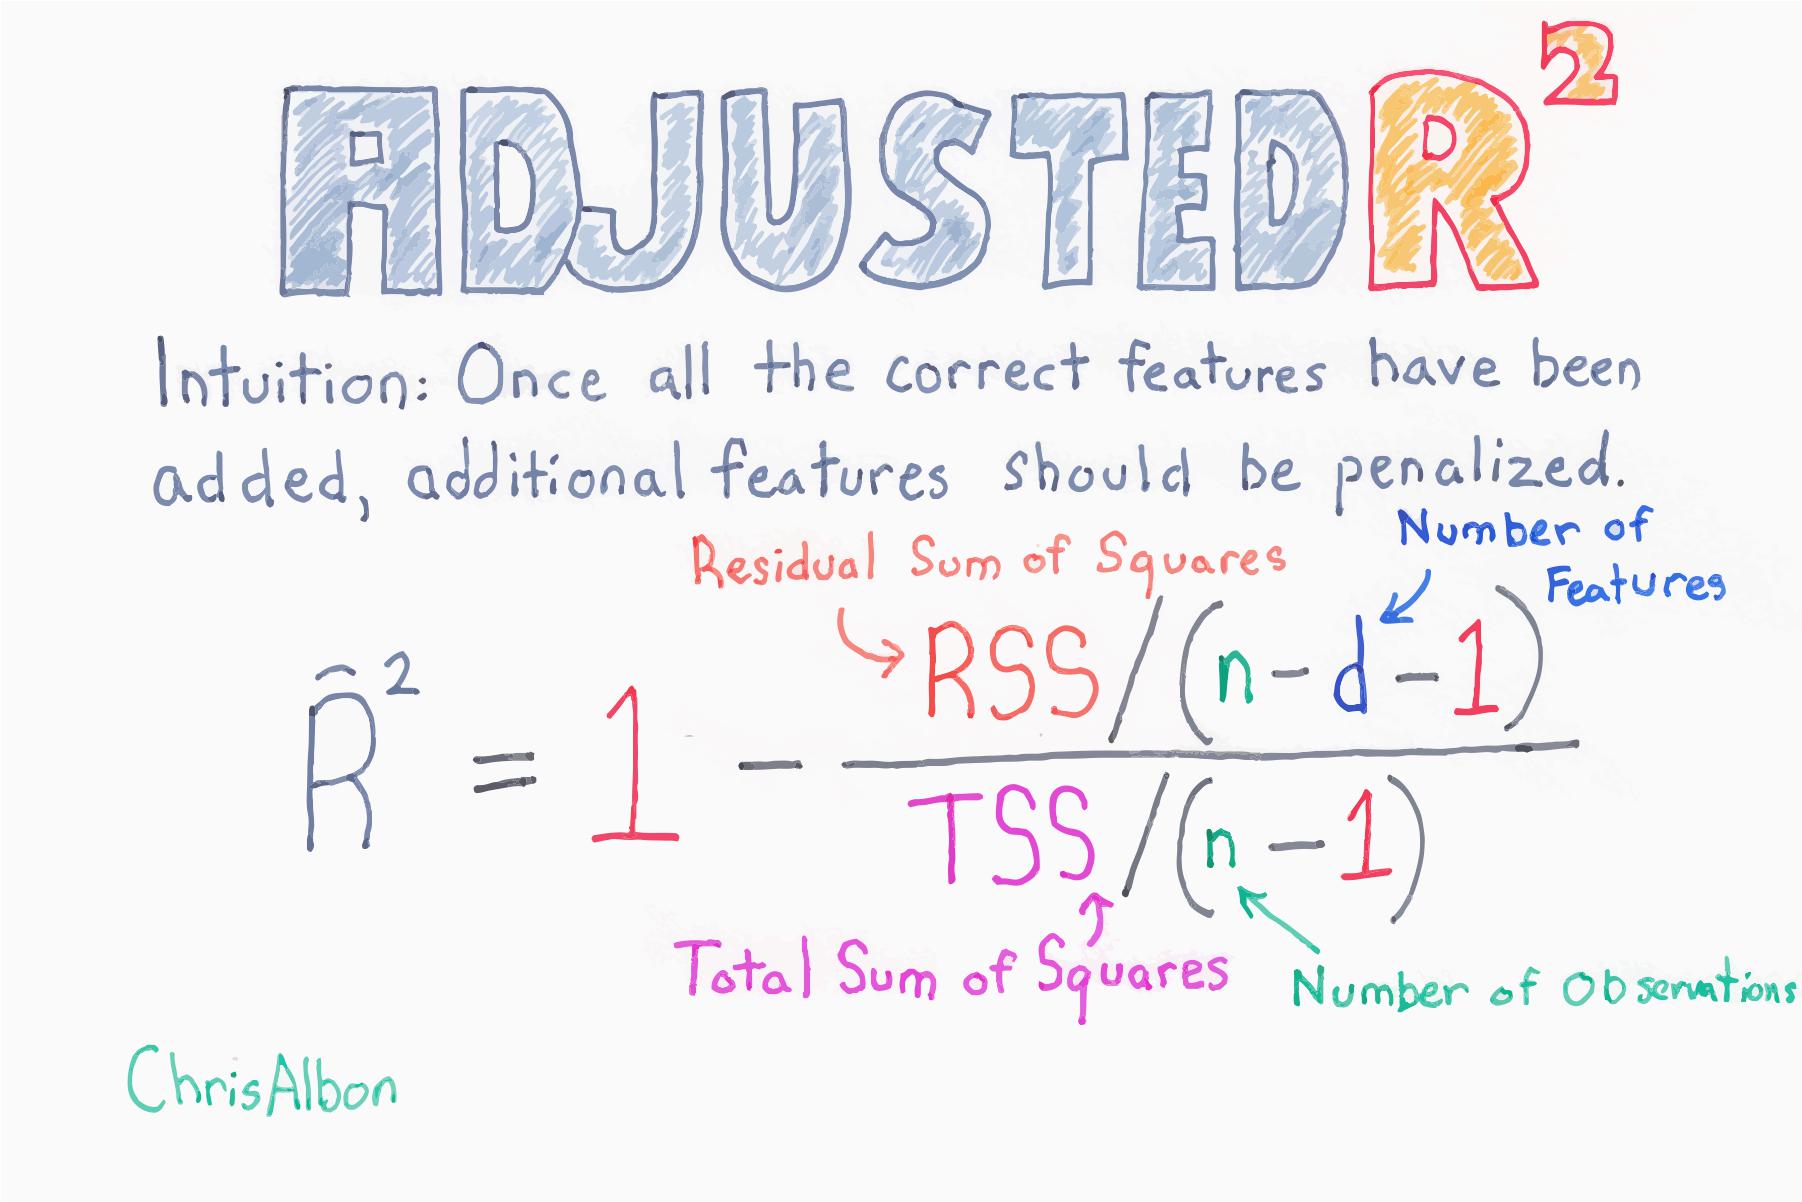 ADJUSTED R²
Intuition: Once all the correct features have been
added, additional features should be penalized.
Number of
Features
Residual Sum of Squares
R̂² = 1 - RSS/(n-d-1)
TSS/(n-1)
Total Sum of Squares
Number of Observations
ChrisAlbon